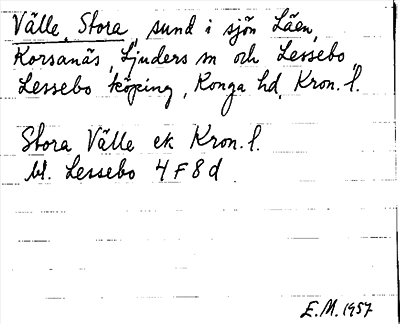 Välle, Stora, sund i sjön Läen,
Korsanäs, Ljuders sn och Lessebo,
Lessebo köping, Konga hd, Kron. l.
Stora Välle ek Kron. l.
bl. Lessebo 4 F 8 d
E. M. 1957